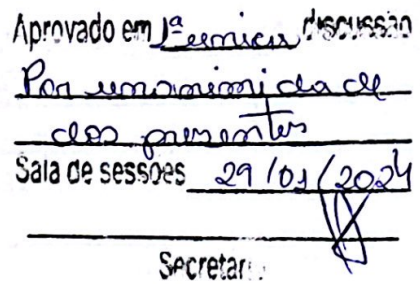 Aprovado em 1ª e unica discussão
Por unanimidade
dos presentes
Sala de sessões 29/01/2024
Secretar